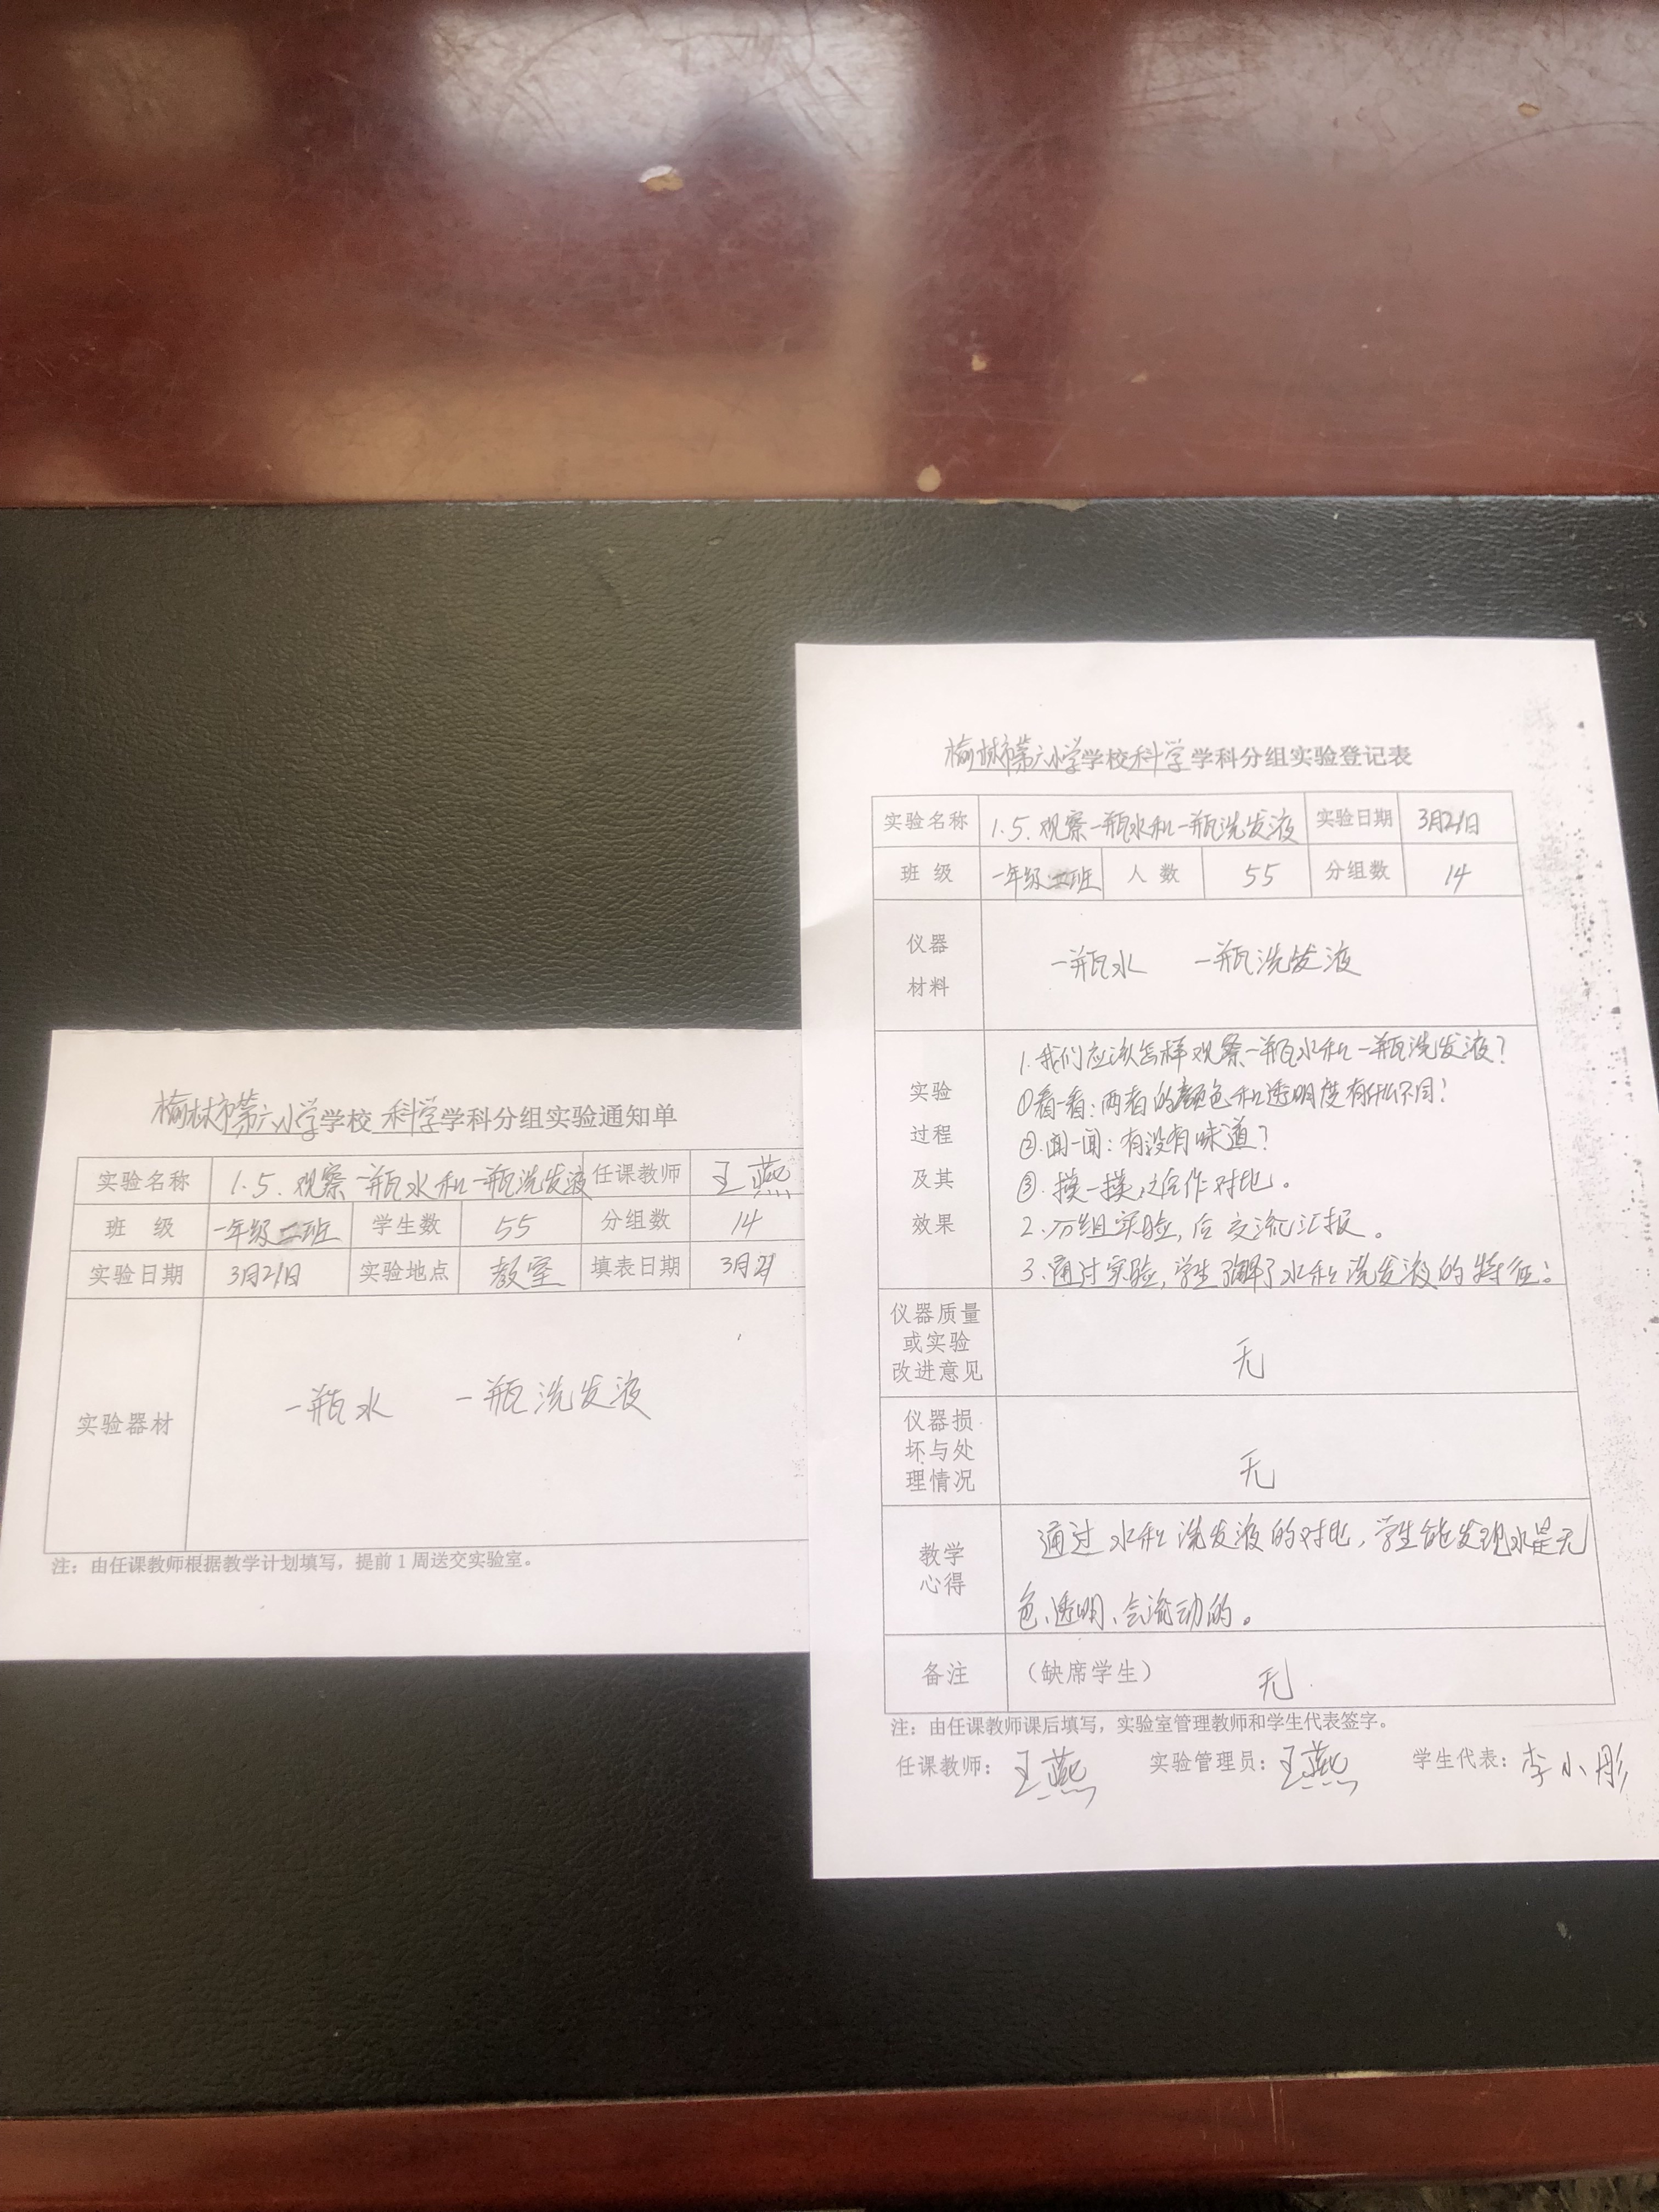 榆林市第六小学学校科学学科分组实验通知单
实验名称 1.5.观察一瓶水和一瓶洗发液 任课教师 王燕
班 级 一年级二班 学生数 55 分组数 14
实验日期 3月21日 实验地点 教室 填表日期 3月21
实验器材 一瓶水 一瓶洗发液
注：由任课教师根据教学计划填写，提前1周送交实验室。
榆林市第六小学学校科学学科分组实验登记表
实验名称 1.5.观察一瓶水和一瓶洗发液 实验日期 3月21日
班 级 一年级二班 人 数 55 分组数 14
仪器
材料
一瓶水 一瓶洗发液
实验
过程
及其
效果
1.我们应该怎样观察一瓶水和一瓶洗发液？
①看一看：两者的颜色和透明度有什么不同？
②.闻一闻：有没有味道？
③.摸一摸，合作对比。
2.分组实验，后交流汇报。
3.通过实验，学生了解了水和洗发液的特征。
仪器质量
或实验
改进意见
无
仪器损
坏与处
理情况
无
教学
心得
通过水和洗发液的对比，学生能发现水是无
色、透明、会流动的。
备注 （缺席学生） 无
注：由任课教师课后填写，实验室管理教师和学生代表签字。
任课教师：王燕 实验管理员：王燕 学生代表：李小彤